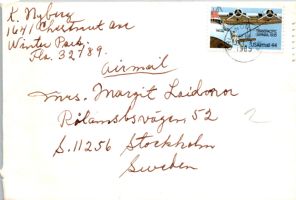 K. Nyberg
1641 Chestnut Ave
Winter Park,
Fla. 32789.
TRANSPACIFIC
AIRMAIL 1935
USAirmail 44
Airmail
Mrs. Margit Laidoror
Rålambsvägen 52
S. 11256 Stockholm
Sweden
2